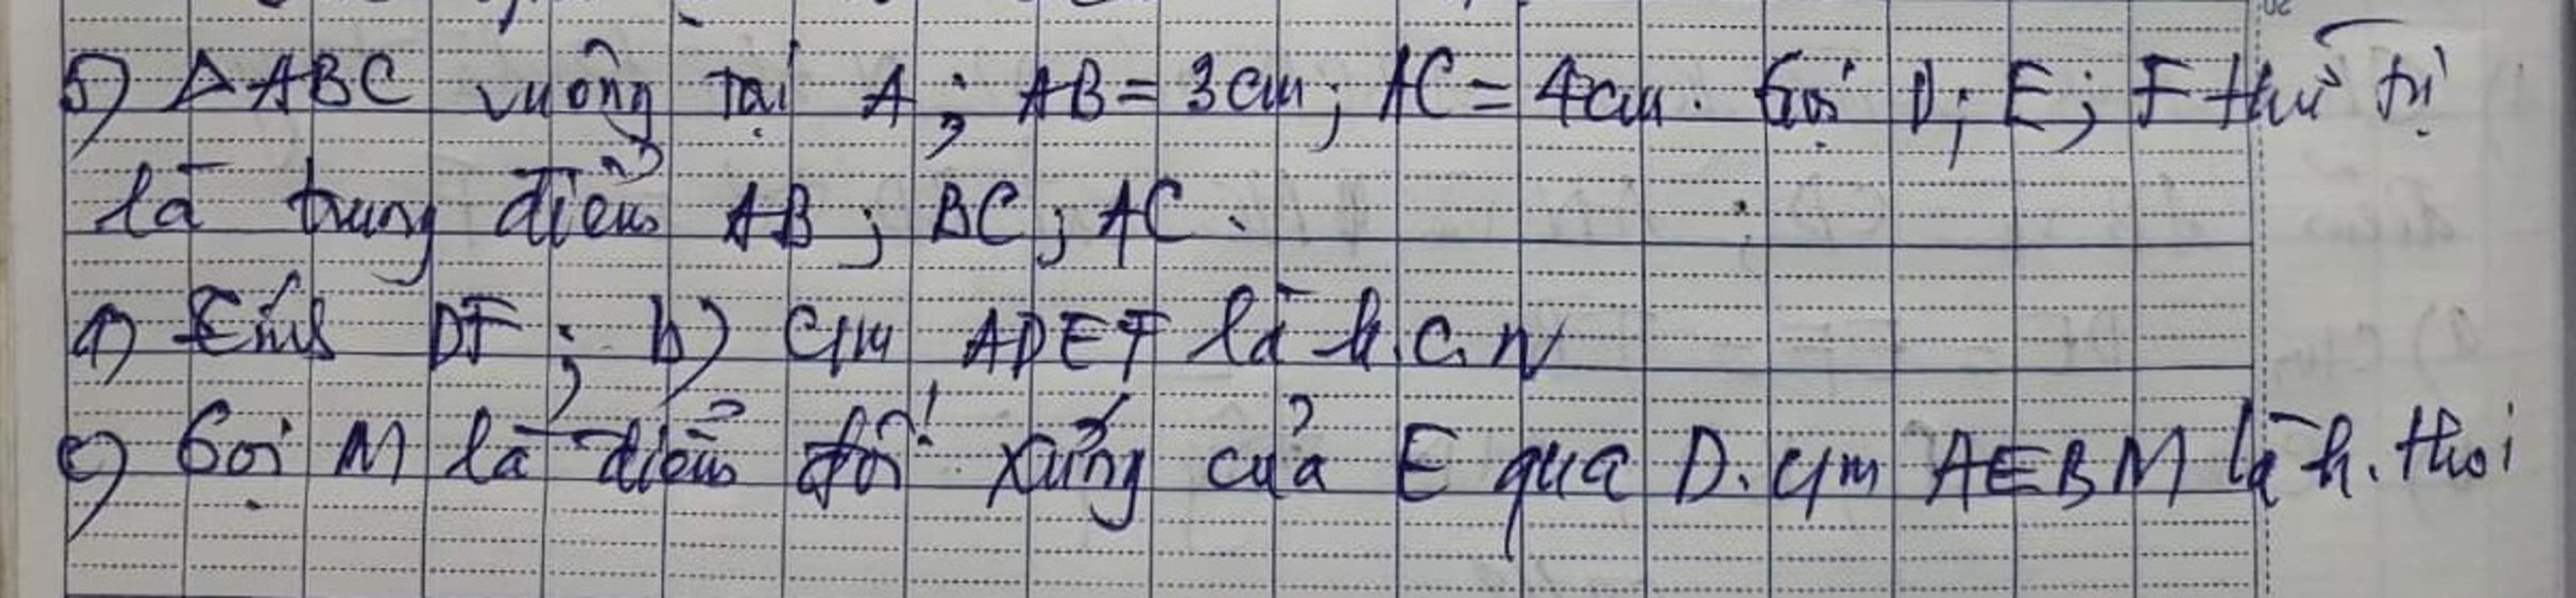 5) Δ ABC vuông tại A; AB = 3cm; AC = 4cm. Gọi D; E; F thứ tự
là trung điểm AB; BC; AC.
a) Tính DF; b) CM ADEF là h.c.n
c) Gọi M là điểm đối xứng của E qua D. CM AEBM là h. thoi